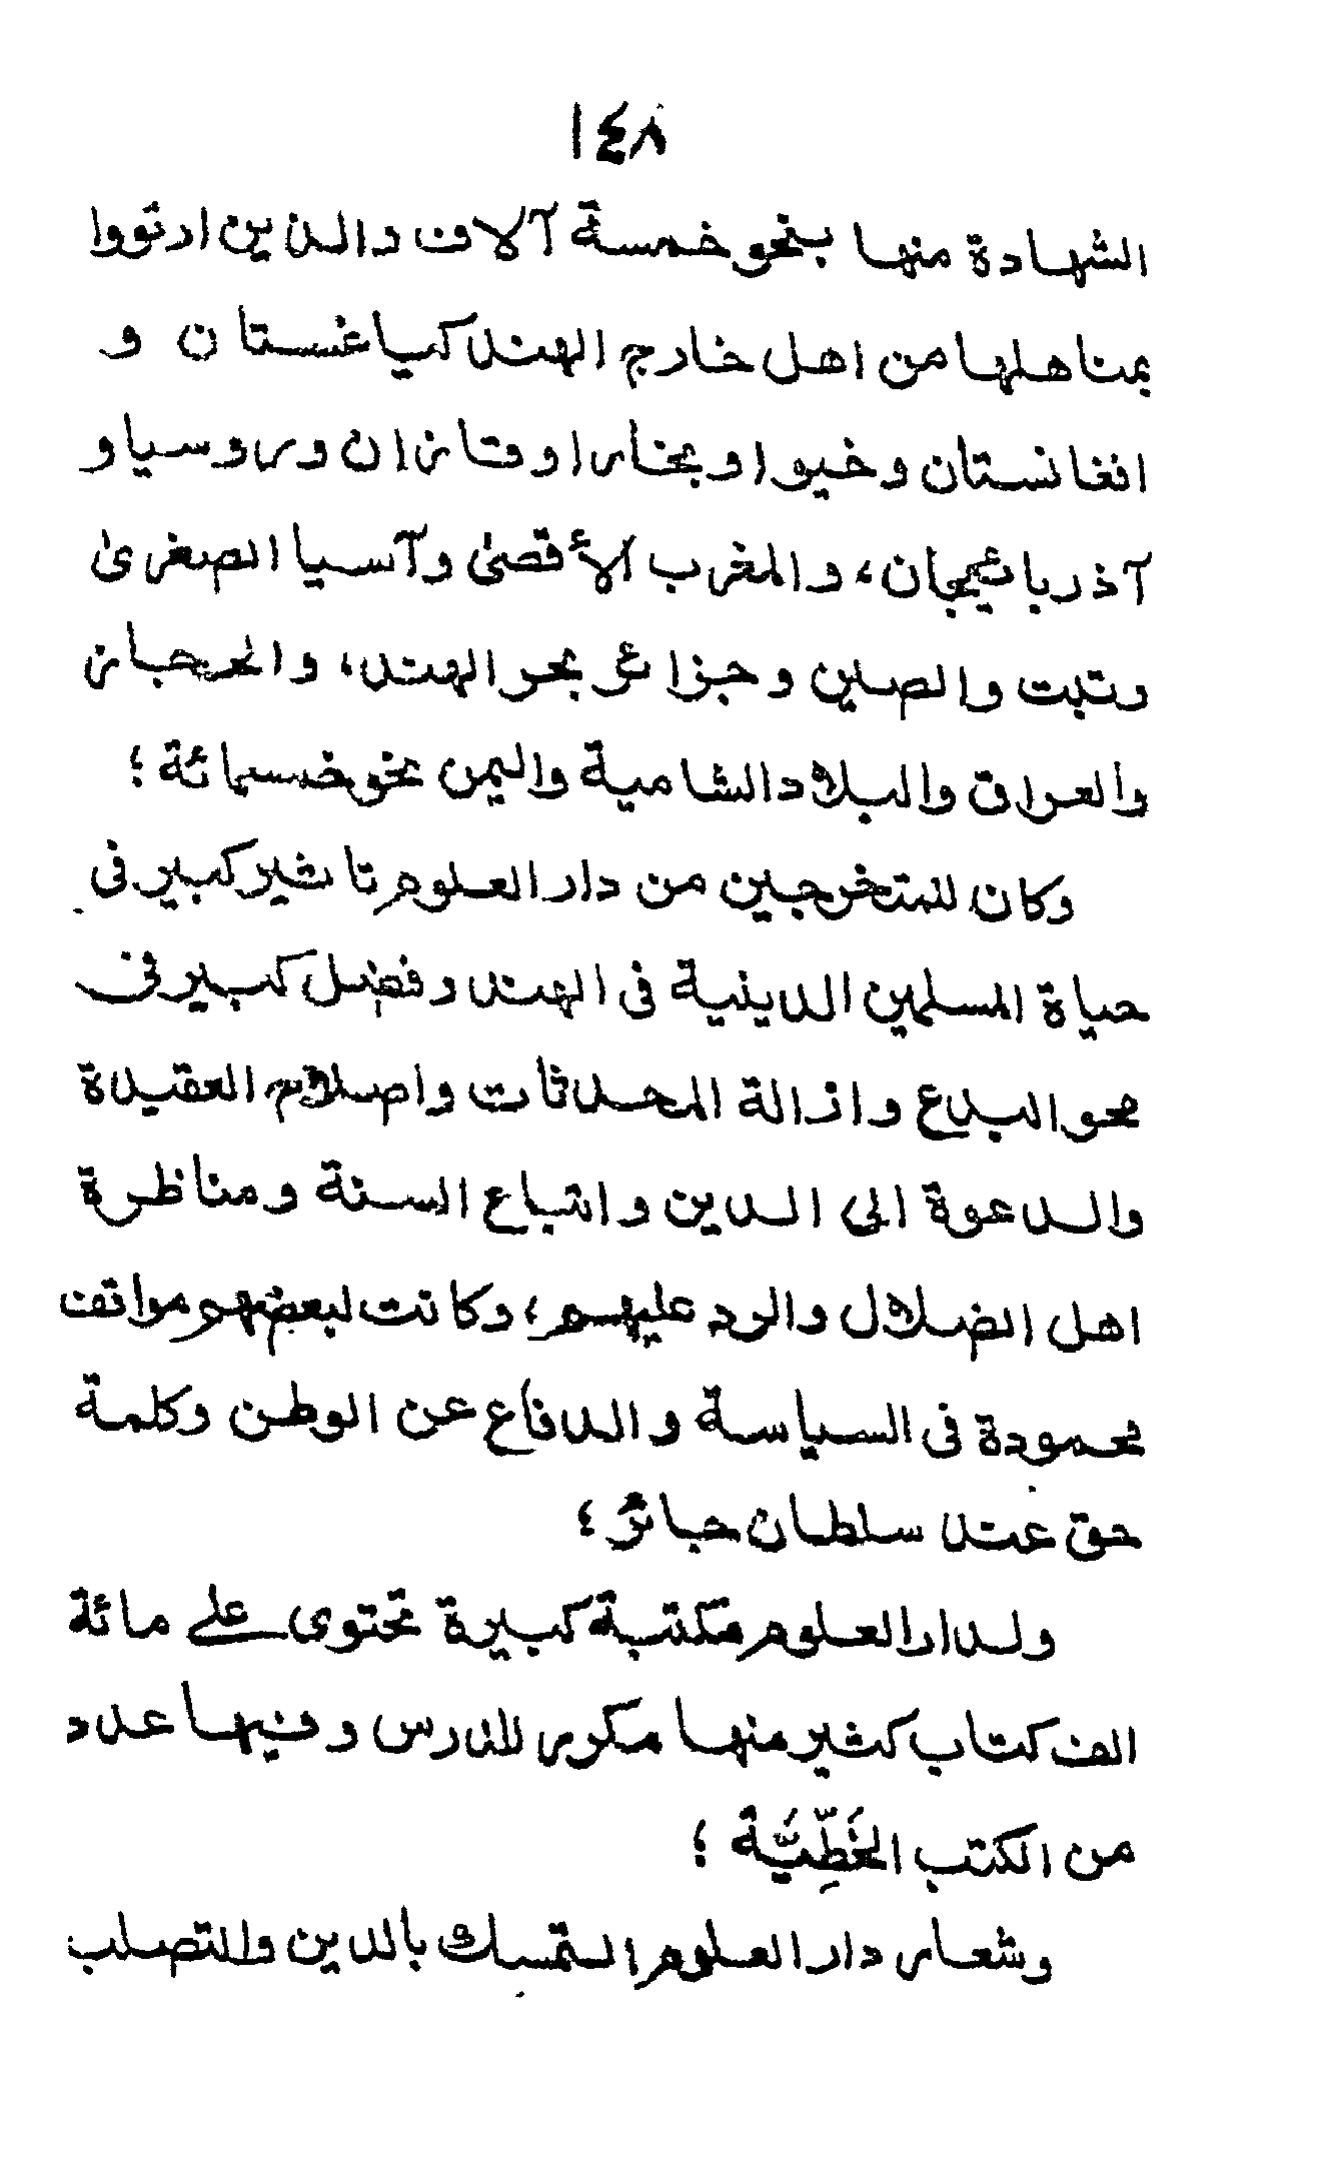 ١٤٨
الشهادة منها بنحو خمسة آلاف والذين ارتووا
بمناهلها من اهل خارج الهند كياغستان و
افغانستان وخيوا وبخارا وقازان وروسيا و
آذربائيجان، والمغرب الأقصىٰ وآسيا الصغرىٰ
وتبت والصين وجزائر بحر الهند، والحجاز
والعراق والبلاد الشامية واليمن نحو خمسمائة ؛
وكان للمتخرجين من دار العلوم تاثير كبير فى
حياة المسلمين الدينية فى الهند وفضل كبير فى
محو البدع وازالة المحدثات واصلاح العقيدة
والدعوة الى الدين واتباع السنة ومناظرة
اهل الضلال والرد عليهم ؛ وكانت لبعضهم مواقف
محمودة فى السياسة والدفاع عن الوطن وكلمة
حق عند سلطان جائر ؛
ولدار العلوم مكتبة كبيرة تحتوى على مائة
الف كتاب كثير منها مكرر للدرس وفيها عدد
من الكتب الخَطِّيَّة ؛
وشعار دار العلوم التمسك بالدين والتصلب